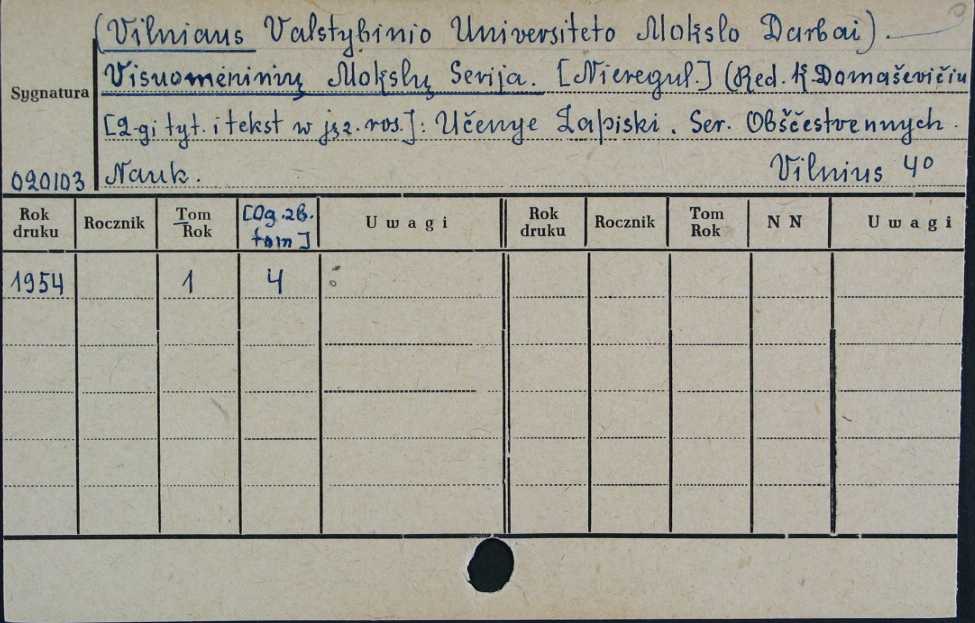 (Vilniaus Valstybinio Universiteto Mokslo Darbai).
Visuomėninių Mokslų Serija. [Nieregul.] (Red. K. Domaševičiu
Sygnatura
[2-gi tyt. i tekst w jęz. ros.]: Učenye Zapiski. Ser. Obščestvennych
020103 Nauk. Vilnius 4°
Rok druku Rocznik Tom Rok [Og. zb. tom] Uwagi Rok druku Rocznik Tom Rok NN Uwagi
1954 1 4